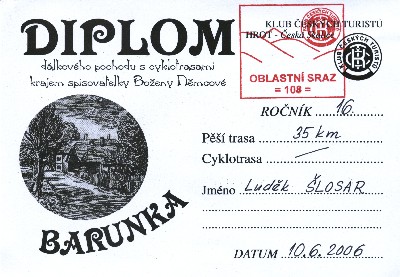 DIPLOM
dálkového pochodu s cyklotrasami
krajem spisovatelky Boženy Němcové
KLUB ČESKÝCH TURISTŮ
HROT - Česká Skalice
OBLASTNÍ SRAZ
= 108 =
KLUB ČESKÝCH TURISTŮ
KČT
ROČNÍK 16.
Pěší trasa 35 km
Cyklotrasa —
Jméno Luděk ŠLOSAR
BARUNKA
DATUM 10.6.2006